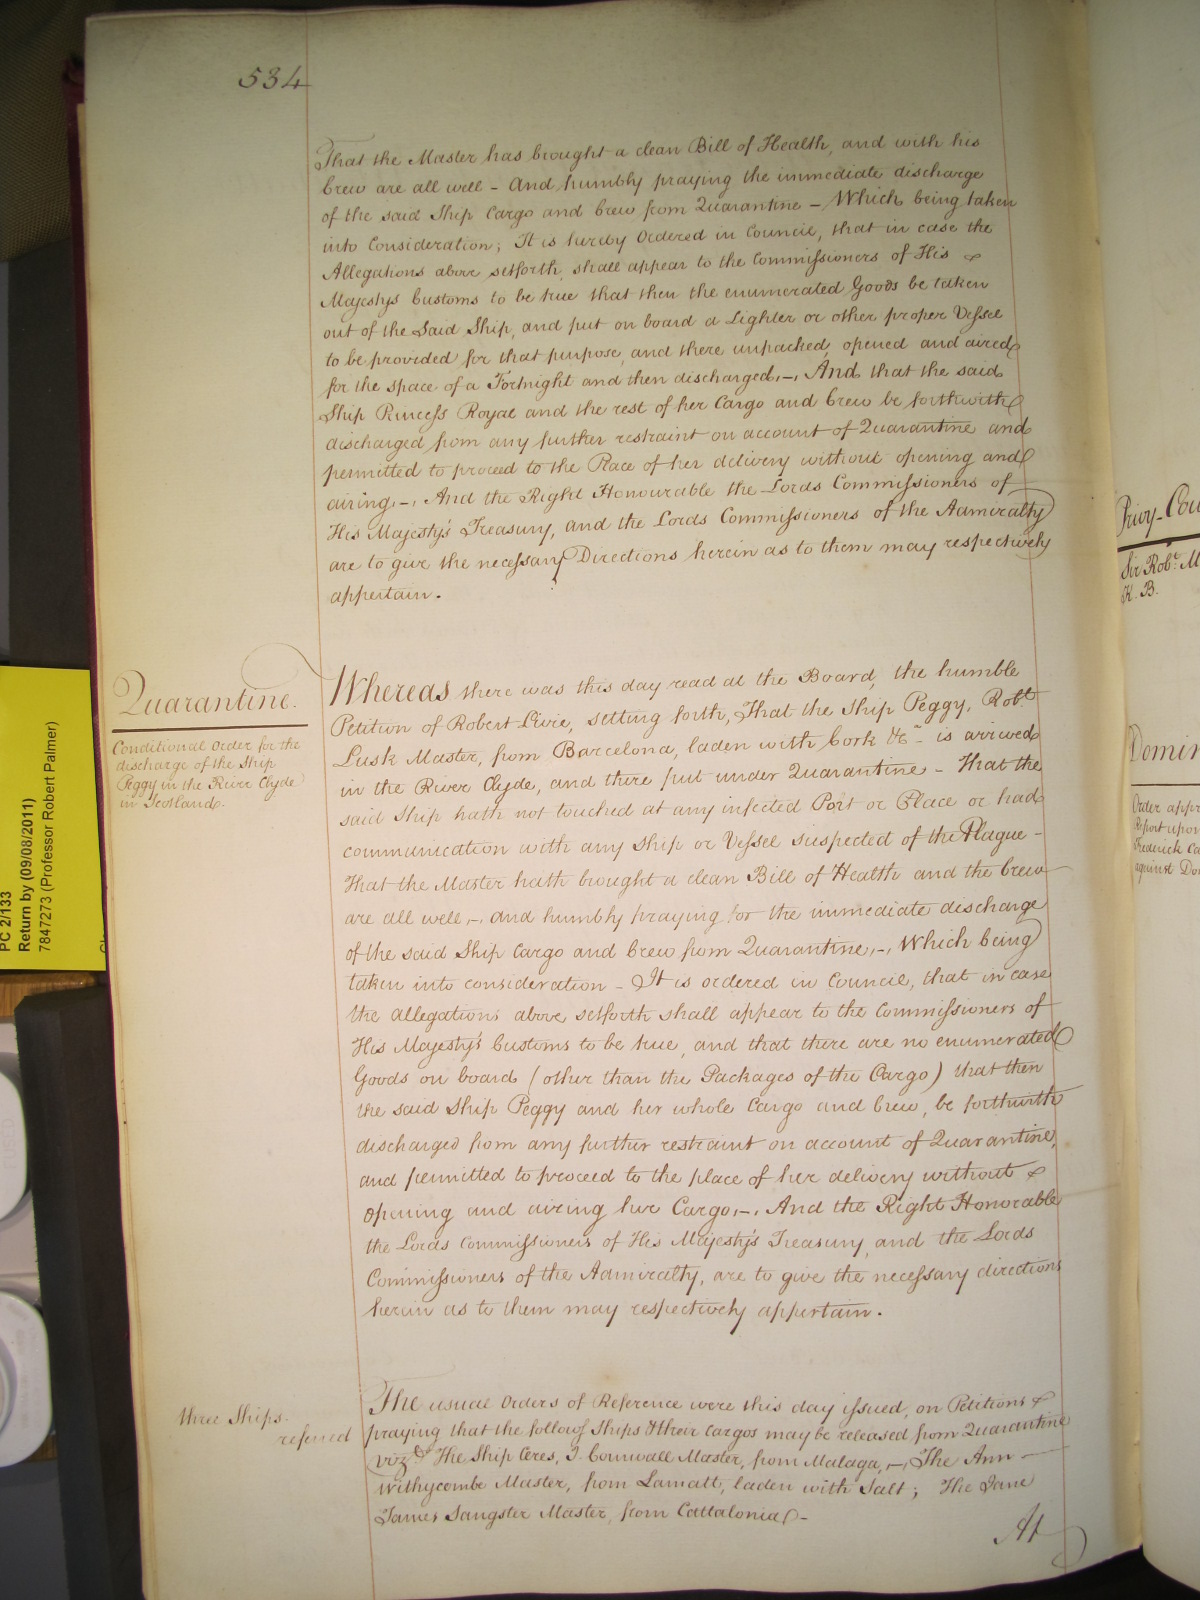 534
That the Master has brought a clean Bill of Health, and with his
Crew are all well - And humbly praying the immediate discharge
of the said Ship Cargo and Crew from Quarantine - Which being taken
into Consideration; It is hereby Ordered in Council, that in case the
Allegations above setforth, shall appear to the Commissioners of His
Majestys Customs to be true that then the enumerated Goods be taken
out of the Said Ship, and put on board a Lighter or other proper Vessel
to be provided for that purpose, and there unpacked, opened and aired
for the space of a Fortnight and then discharged,-, And that the said
Ship Princess Royal and the rest of her Cargo and Crew be forthwith
discharged from any further restraint on account of Quarantine and
permitted to proceed to the Place of her delivery without opening and
airing,-, And the Right Honourable the Lords Commissioners of
His Majesty's Treasury, and the Lords Commissioners of the Admiralty
are to give the necessary Directions herein as to them may respectively
appertain.
Quarantine.
Conditional Order for the
discharge of the Ship
Peggy in the River Clyde
in Scotland.
Whereas there was this day read at the Board, the humble
Petition of Robert Livie, setting forth, That the Ship Peggy, Robt.
Lusk Master, from Barcelona, laden with Cork &c. is arrived
in the River Clyde, and there put under Quarantine - That the
said Ship hath not touched at any infected Port or Place or had
communication with any Ship or Vessel suspected of the Plague -
That the Master hath brought a clean Bill of Health and the Crew
are all well,-, and humbly praying for the immediate discharge
of the said Ship Cargo and Crew from Quarantine,-, Which being
taken into consideration - It is ordered in Council, that in case
the allegations above setforth shall appear to the Commissioners of
His Majesty's Customs to be true, and that there are no enumerated
Goods on board (other than the Packages of the Cargo) that then
the said Ship Peggy and her whole Cargo and Crew, be forthwith
discharged from any further restraint on account of Quarantine,
and permitted to proceed to the place of her delivery without
opening and airing her Cargo,-, And the Right Honorable
the Lords Commissioners of His Majesty's Treasury, and the Lords
Commissioners of the Admiralty, are to give the necessary directions
herein as to them may respectively appertain.
three Ships
referred
The usual Orders of Reference were this day issued, on Petitions
praying that the follows Ships & their Cargos may be released from Quarantine
vizt. The Ship Ceres, J. Cornwall Master, from Malaga,-, The Ann
Withycombe Master, from Lamatt, laden with Salt; The Jane
James Sangster Master, from Cattalonia -
At
PC 2/133
Return by (09/08/2011)
7847273 (Professor Robert Palmer)
Privy-Cou
Sir Robt. M
K. B.
Domin
Order appr
Report upon
Frederick Co
against Do